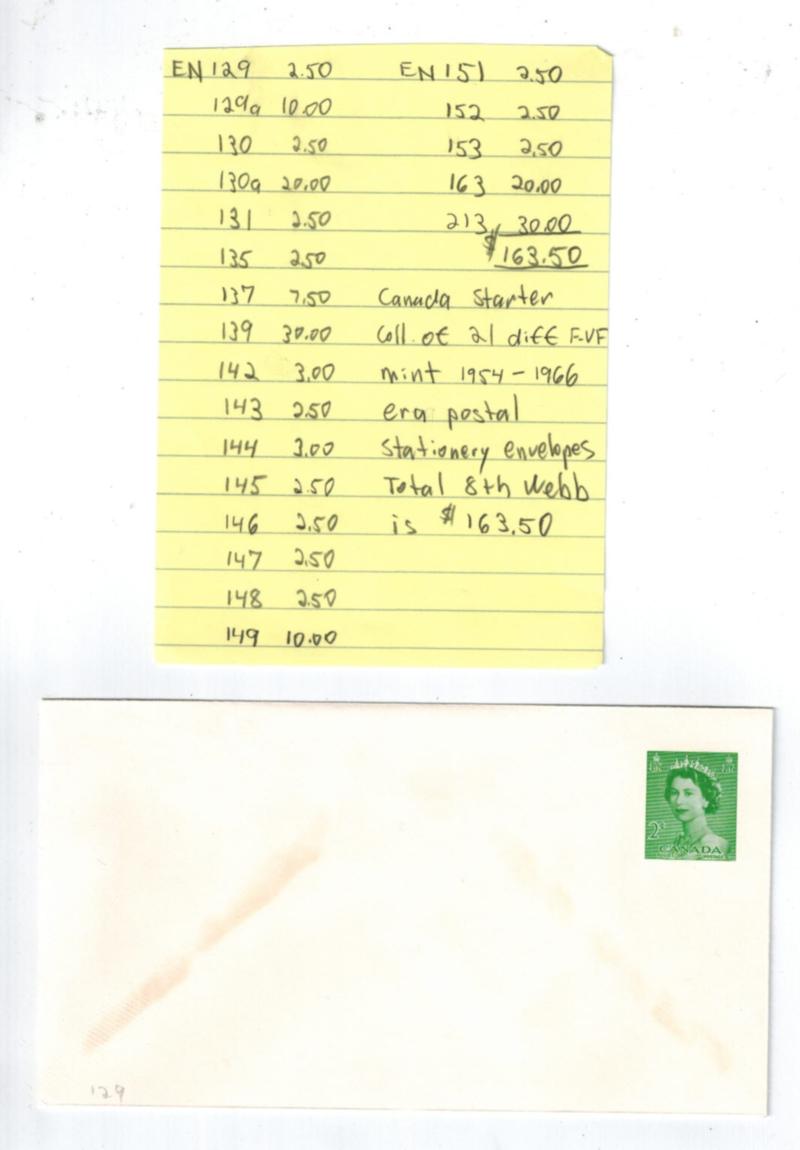 EN 129 2.50
129a 10.00
130 2.50
130a 20.00
131 2.50
135 2.50
137 7.50
139 30.00
142 3.00
143 2.50
144 3.00
145 2.50
146 2.50
147 2.50
148 2.50
149 10.00
EN 151 2.50
152 2.50
153 2.50
163 20.00
213 30.00
$163.50
Canada Starter
Coll. of 21 diff F-VF
mint 1954 - 1966
era postal
Stationery envelopes
Total 8th Webb
is $163.50
2¢
CANADA
129